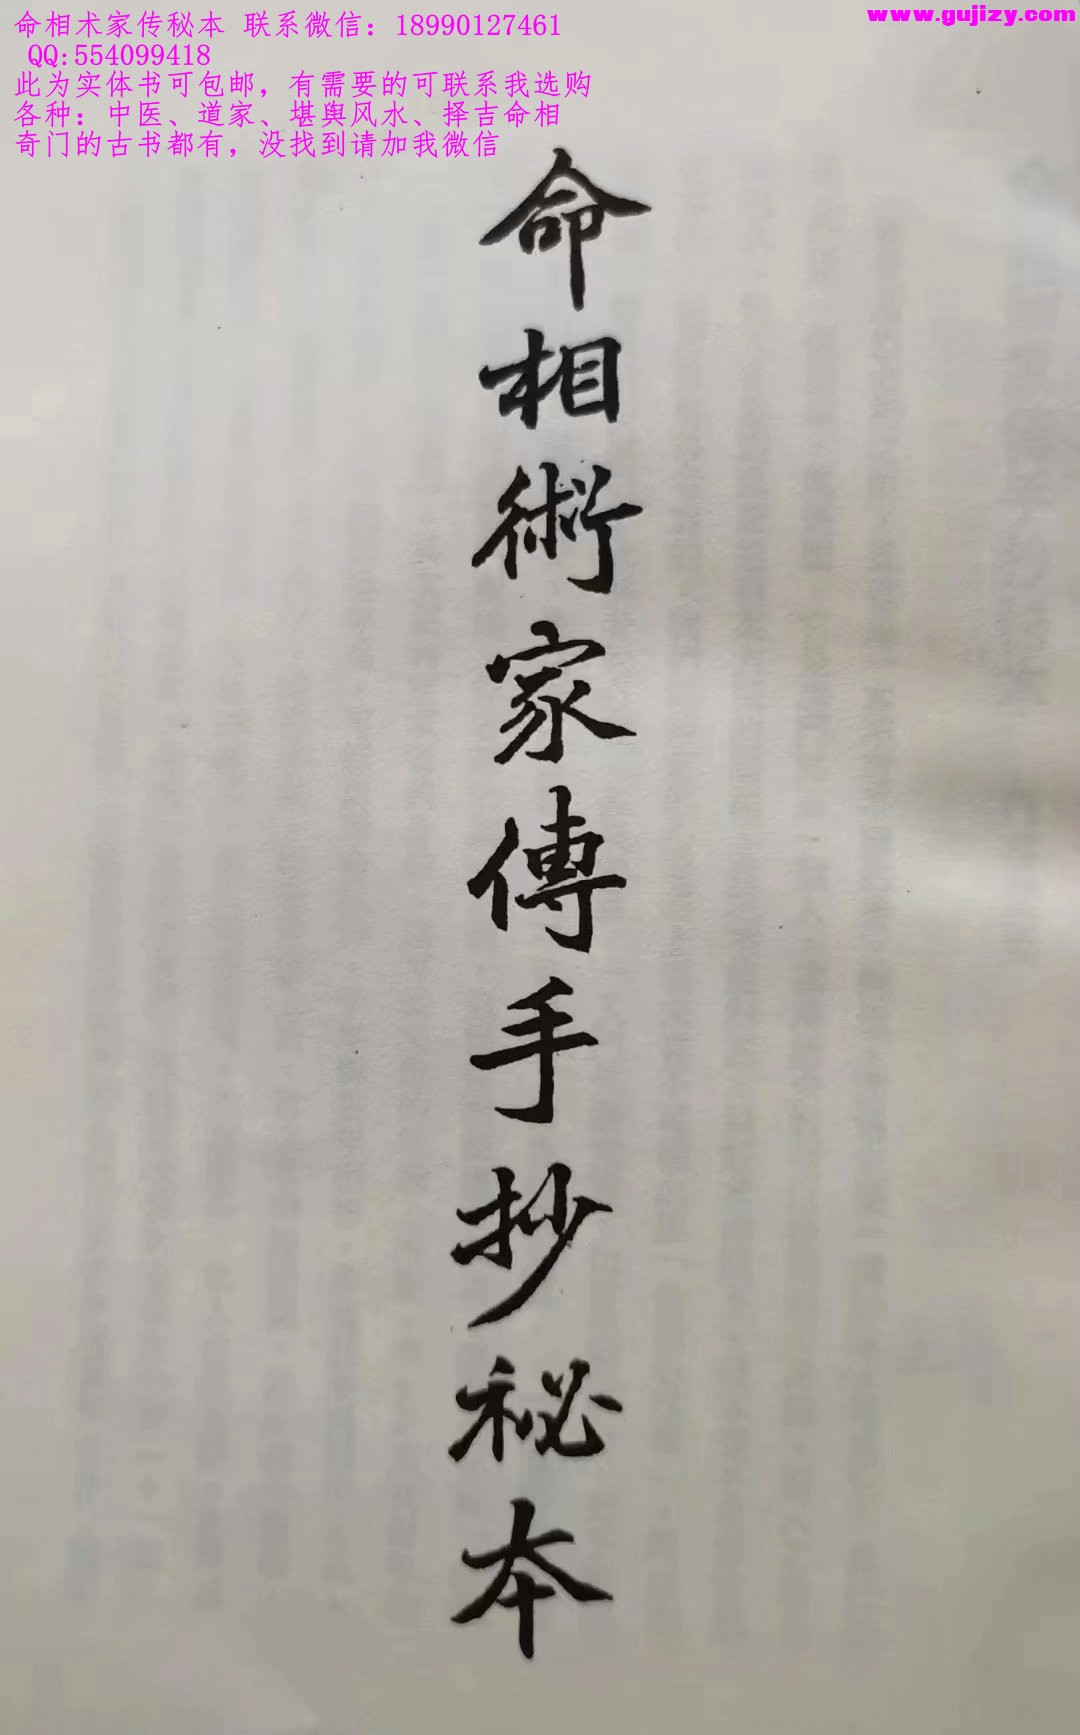 命相术家传秘本 联系微信：18990127461
QQ:554099418
此为实体书可包邮，有需要的可联系我选购
各种：中医、道家、堪舆风水、择吉命相
奇门的古书都有，没找到请加我微信
www.gujizy.com
命相術家傳手抄祕本